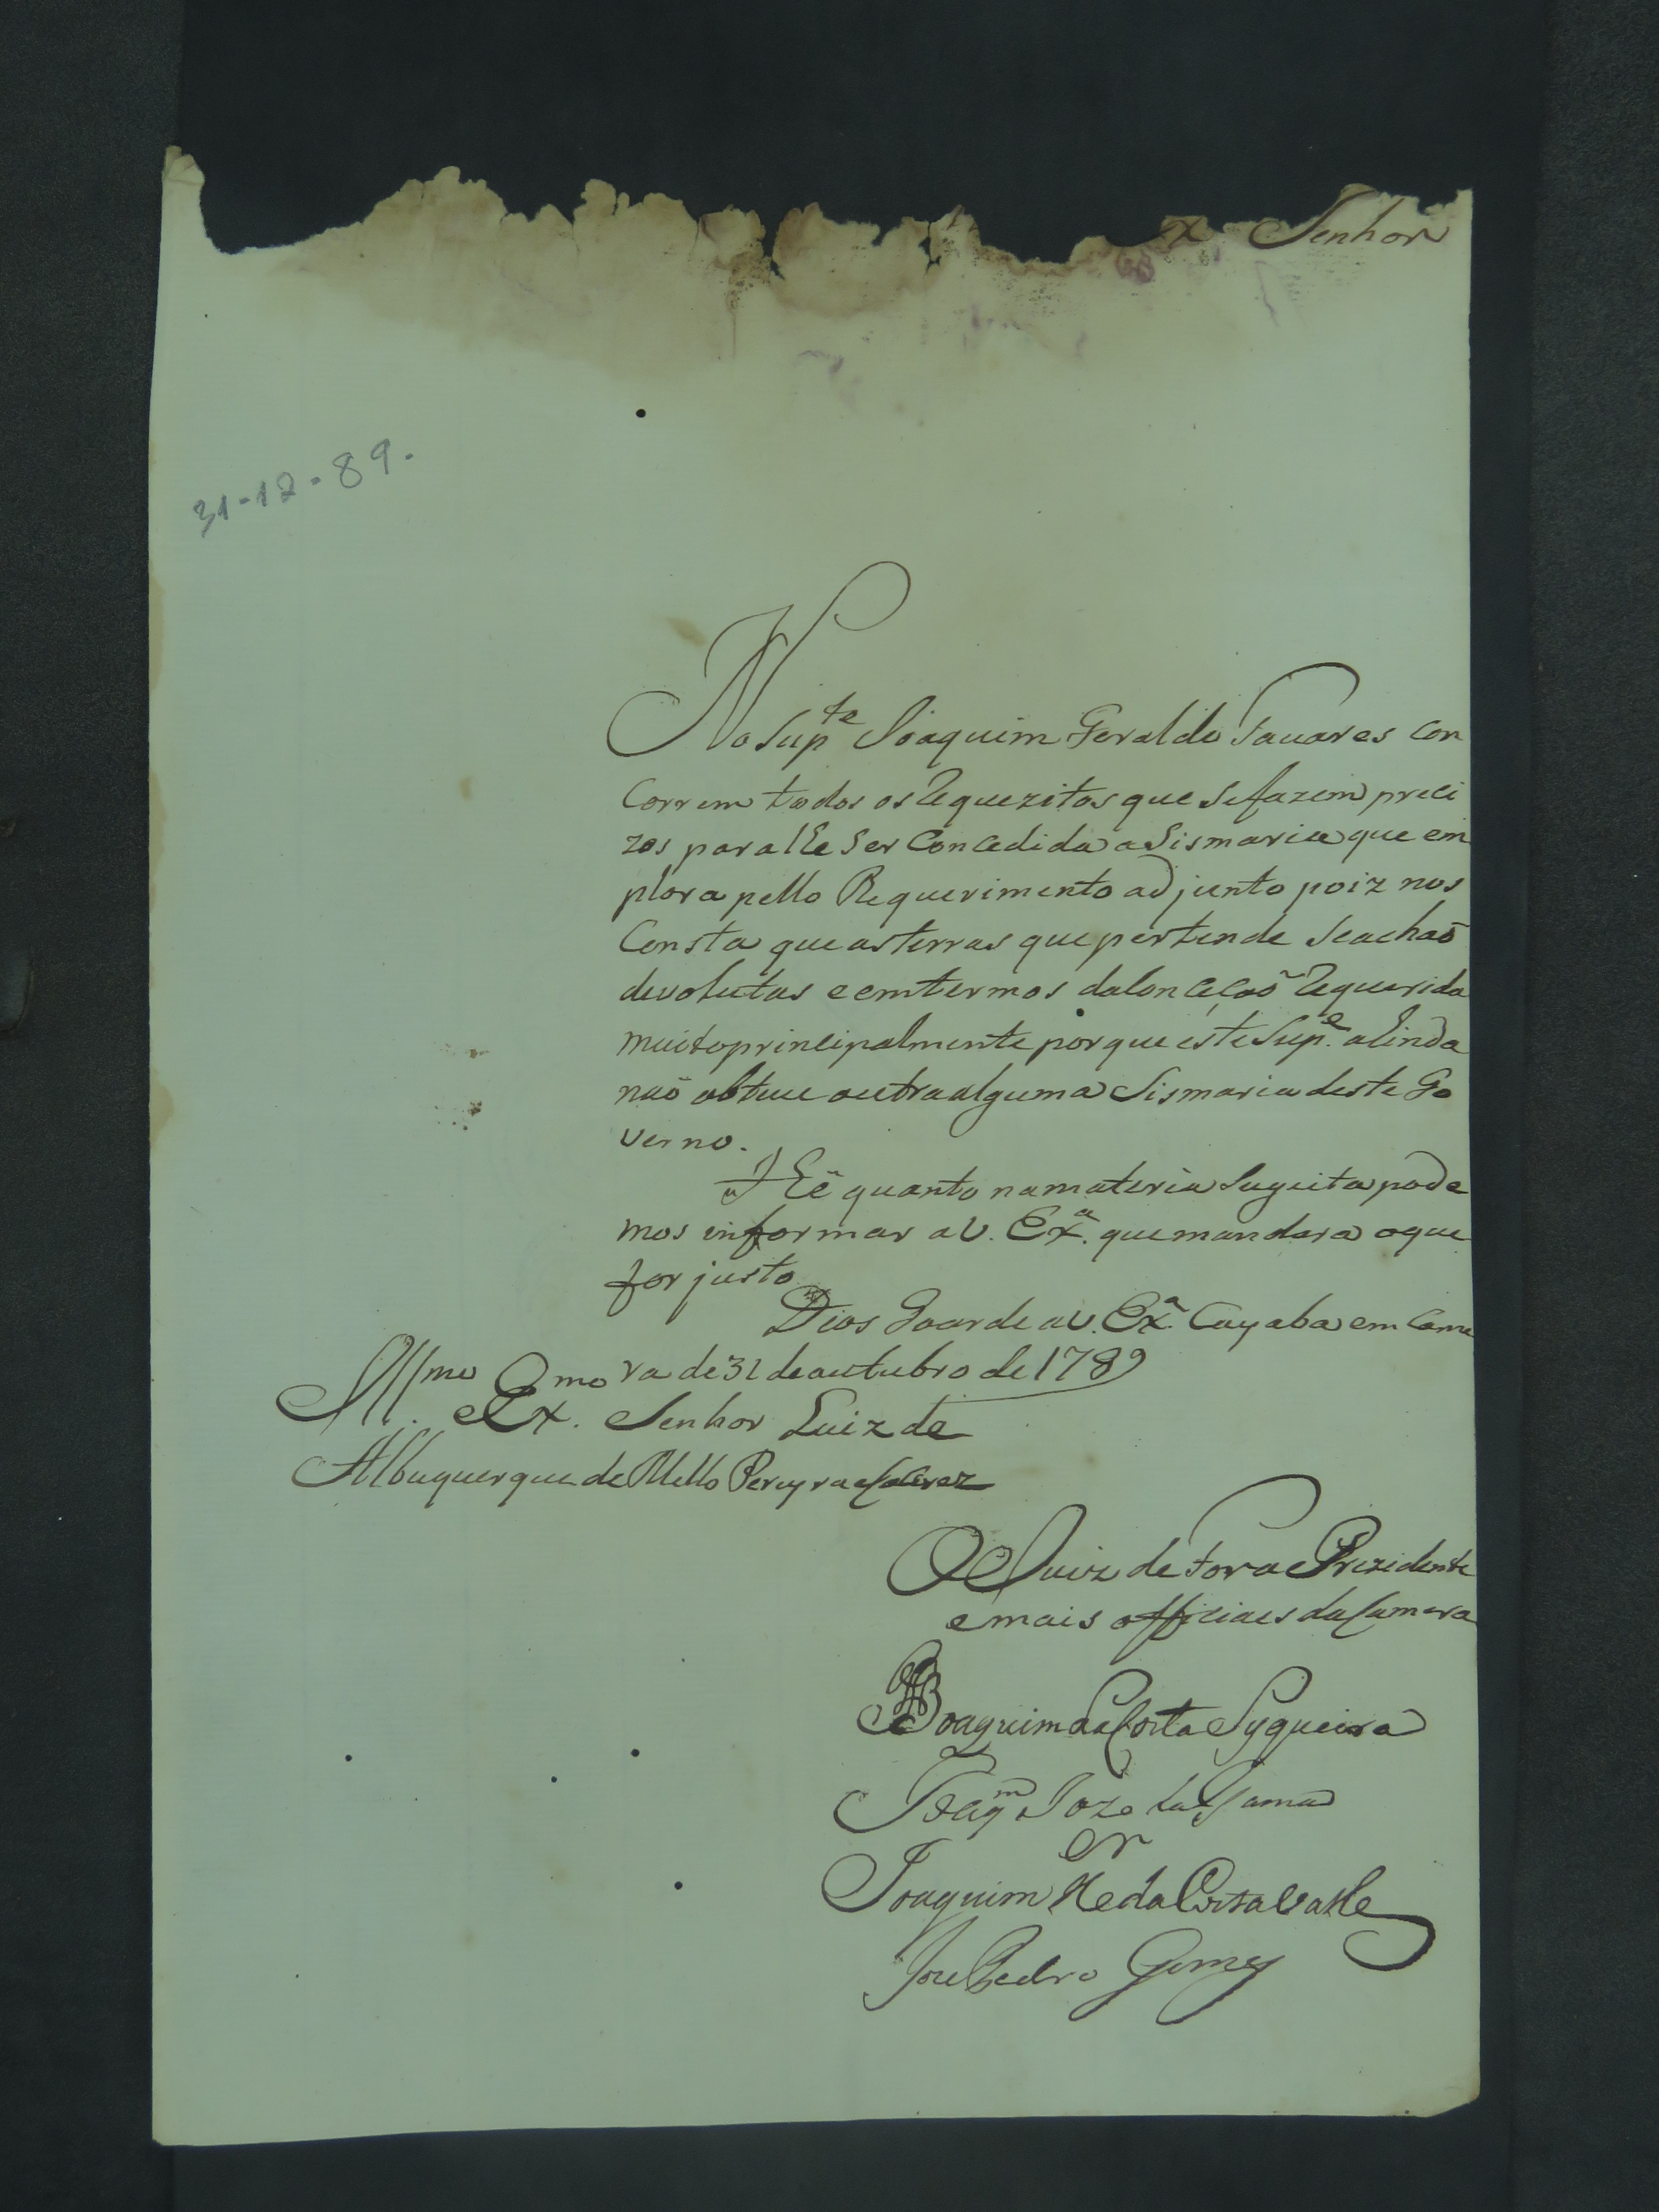 Ex Senhor
31-12-89.
No Supte Joaquim Geraldo Tavares con
correm todos os Requezitos que se fazem preci
zos para lhe ser Concedida a Sismaria que em
plora pello Requerimento adjunto poiz nos
Consta que as terras que pertende se achaõ
devolutas e em termos da Concecaõ Requerida
muito principalmente por que este Supe. ainda
naõ obteve outra alguma Sismaria deste Go
verno.
He quanto na materia Sugeita pode
mos informar a V. Exa. que mandara o que
for justo
Deos Goarde a V. Exa. Cuyaba em Came
ra de 31 de outubro de 1789
Illmo Exmo. Senhor Luiz de
Albuquerque de Mello Pereyra e Caceres
O Juiz de Fora e Prezidente
e mais officiaes da Camera
Joaquim da Costa Syqueira
Joaqm Joze da Gama
Joaquim da Costa Valle
Joze Pedro Gomes